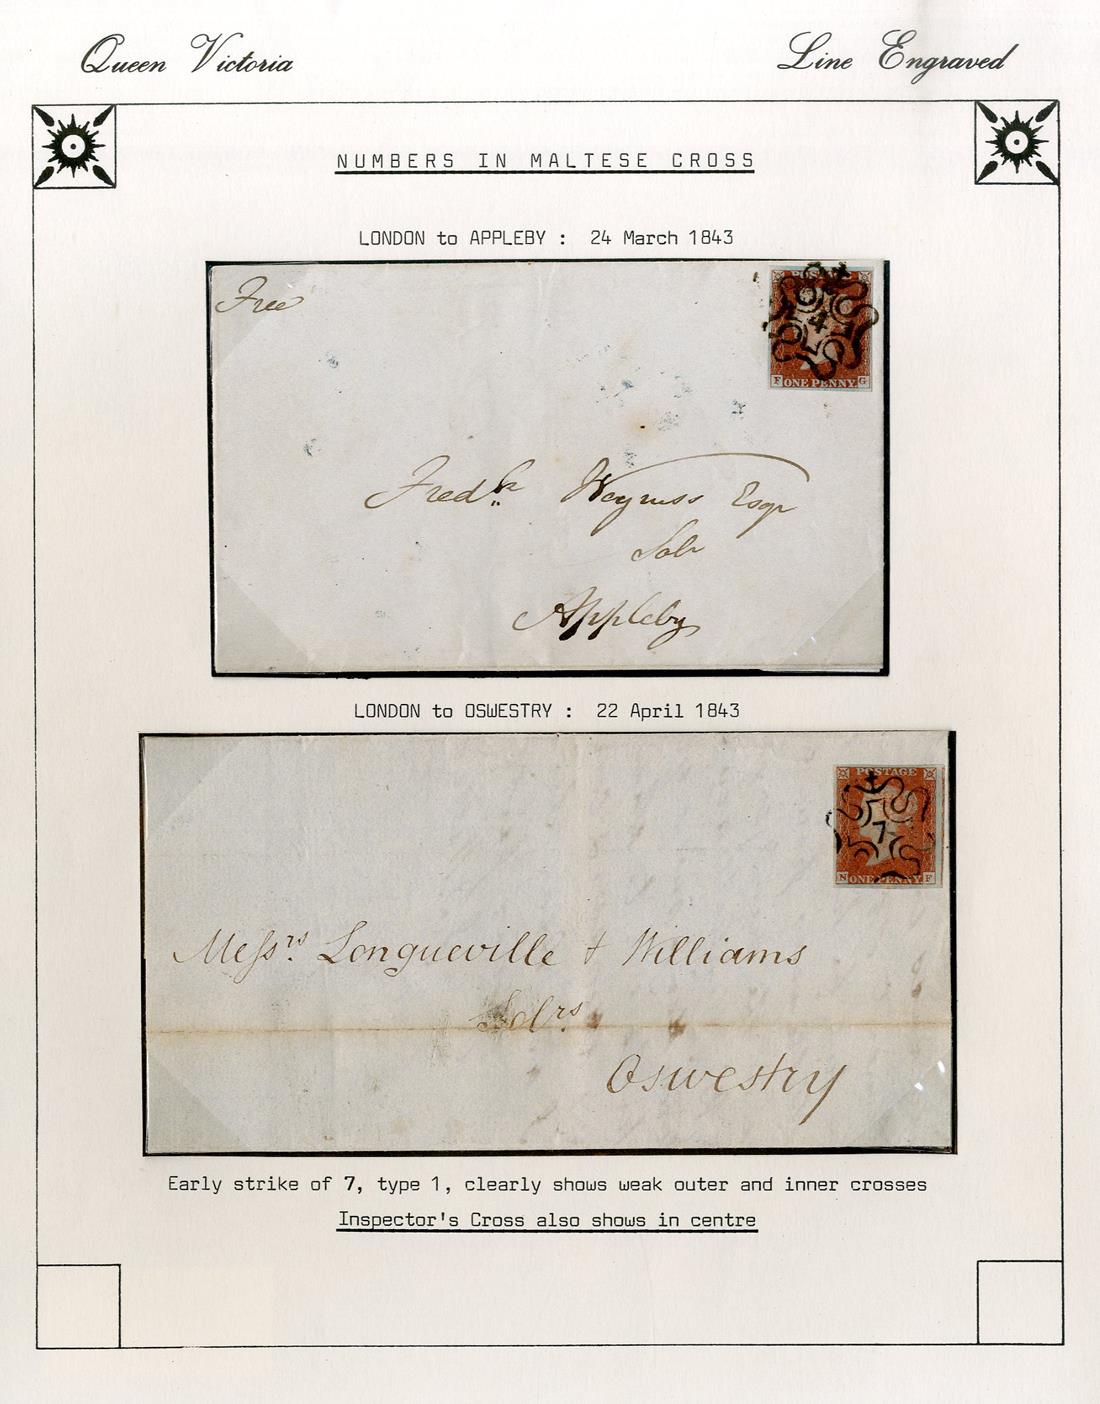 Queen Victoria
Line Engraved
NUMBERS IN MALTESE CROSS
LONDON to APPLEBY : 24 March 1843
Free
POSTAGE
4
F ONE PENNY G
Fredk
Esqr
Solr
Appleby
LONDON to OSWESTRY : 22 April 1843
POSTAGE
7
N ONE PENNY F
Messrs. Longueville + Williams
Solrs.
Oswestry
Early strike of 7, type 1, clearly shows weak outer and inner crosses
Inspector's Cross also shows in centre